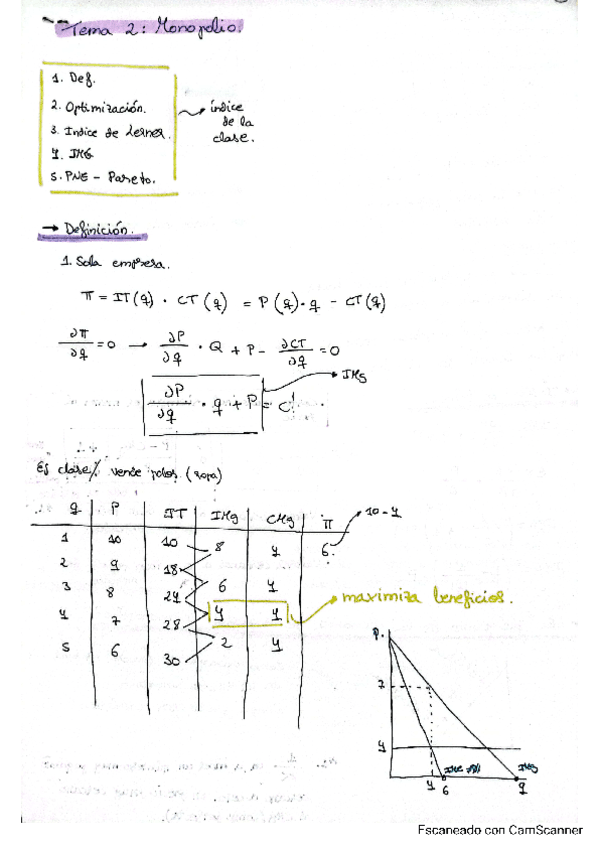 Tema 2: Monopolio.
1. Def.
2. Optimización.
3. Indice de Lerner.
4. IMG
5. PNE - Pareto.
índice de la clase.
→ Definición.
1. Sola empresa.
π = IT(q) · CT(q) = P(q)·q - CT(q)
∂π/∂q = 0 → ∂P/∂q · Q + P - ∂CT/∂q = 0
∂P/∂q · q + P = C'
IMg
vende polos (ropa)
q P IT IMg CMg π
1 10 10 8 4 6. 10-4
2 9 18
3 8 24 6 4
4 7 28 4 4 maximiza beneficios.
5 6 30 2 4
P.
7
4
4 6 q
IMg
Escaneado con CamScanner